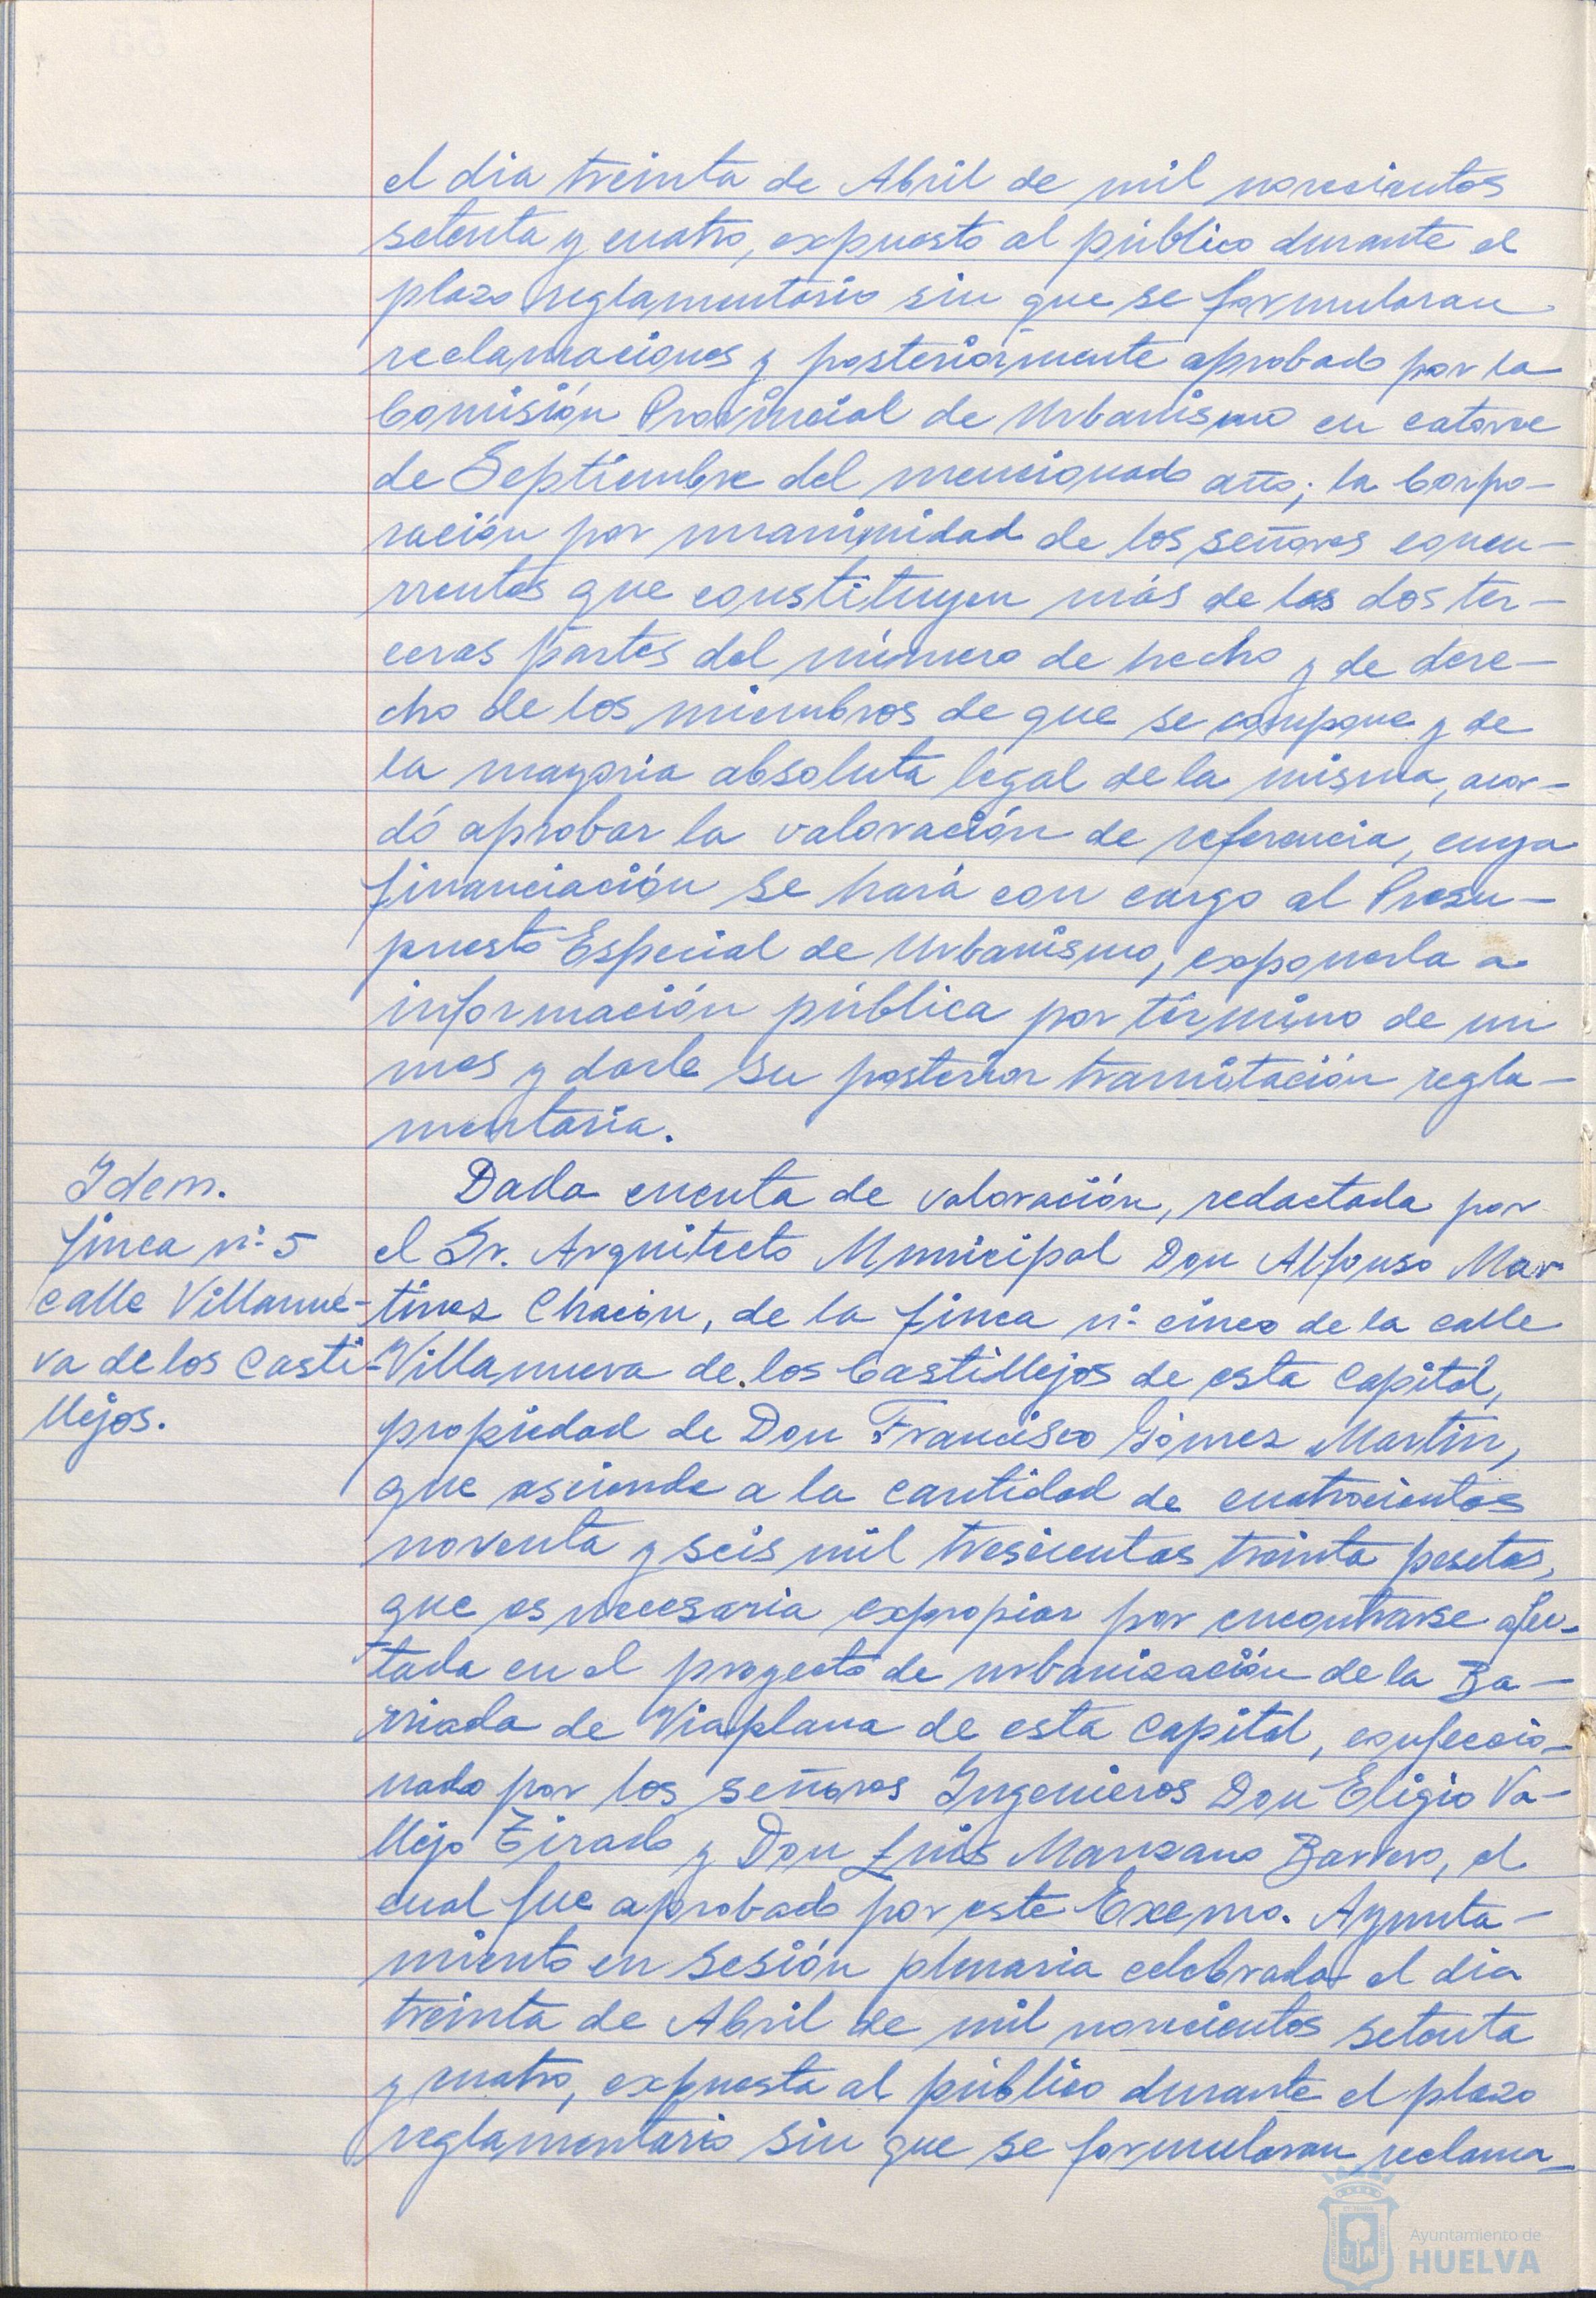 el dia treinta de Abril de mil novecientos
setenta y cuatro, expuesto al público durante el
plazo reglamentario sin que se formularan
reclamaciones y posteriormente aprobado por la
Comisión Provincial de Urbanismo en catorce
de Septiembre del mencionado año; la Corpo-
ración por unanimidad de los señores concu-
rrentes que constituyen más de las dos ter-
ceras partes del número de hecho y de dere-
cho de los miembros de que se compone y de
la mayoria absoluta legal de la misma, acor-
dó aprobar la valoración de referencia, cuya
financiación se hará con cargo al Presu-
puesto Especial de Urbanismo, exponerla a
información pública por término de un
mes y darle su posterior tramitación regla-
mentaria.
Idem.
finca nº 5
calle Villanue-
va de los Casti-
llejos.
Dada cuenta de valoración, redactada por
el Sr. Arquitecto Municipal Don Alfonso Mar
tinez Chacón, de la finca nº cinco de la calle
Villanueva de los Castillejos de esta Capital,
propiedad de Don Francisco Gómez Martin,
que asciende a la cantidad de cuatrocientas
noventa y seis mil trescientas treinta pesetas,
que es necesaria expropiar por encontrarse afec-
tada en el proyecto de urbanización de la Ba-
rriada de Viaplana de esta Capital, confeccio-
nado por los señores Ingenieros Don Eligio Va-
llejo Tirado y Don Luis Manzano Barrero, el
cual fue aprobado por este Excmo. Ayunta-
miento en sesión plenaria celebrada el dia
treinta de Abril de mil novecientos setenta
y cuatro, expuesta al público durante el plazo
reglamentario sin que se formularan reclama-
Ayuntamiento de
HUELVA